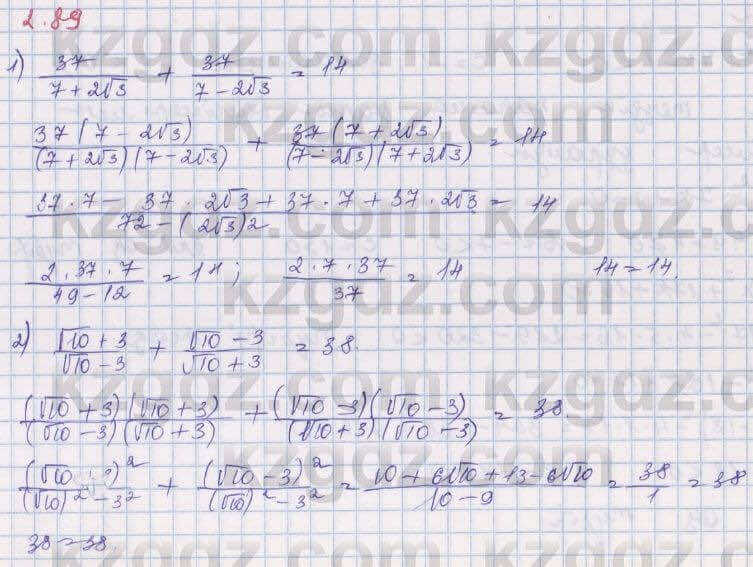 2.89
1) 37/(7 + 2√3) + 37/(7 − 2√3) = 14
37(7 − 2√3)/((7 + 2√3)(7 − 2√3)) + 37(7 + 2√3)/((7 − 2√3)(7 + 2√3)) = 14
(37 · 7 − 37 · 2√3 + 37 · 7 + 37 · 2√3)/(7² − (2√3)²) = 14
(2 · 37 · 7)/(49 − 12) = 14; (2 · 7 · 37)/37 = 14 14 = 14.
2) (√10 + 3)/(√10 − 3) + (√10 − 3)/(√10 + 3) = 38.
(√10 + 3)(√10 + 3)/((√10 − 3)(√10 + 3)) + (√10 − 3)(√10 − 3)/((√10 + 3)(√10 − 3)) = 38.
(√10 + 3)²/((√10)² − 3²) + (√10 − 3)²/((√10)² − 3²) = (10 + 6√10 + 13 − 6√10)/(10 − 9) = 38/1 = 38
38 = 38.
kzgdz.com